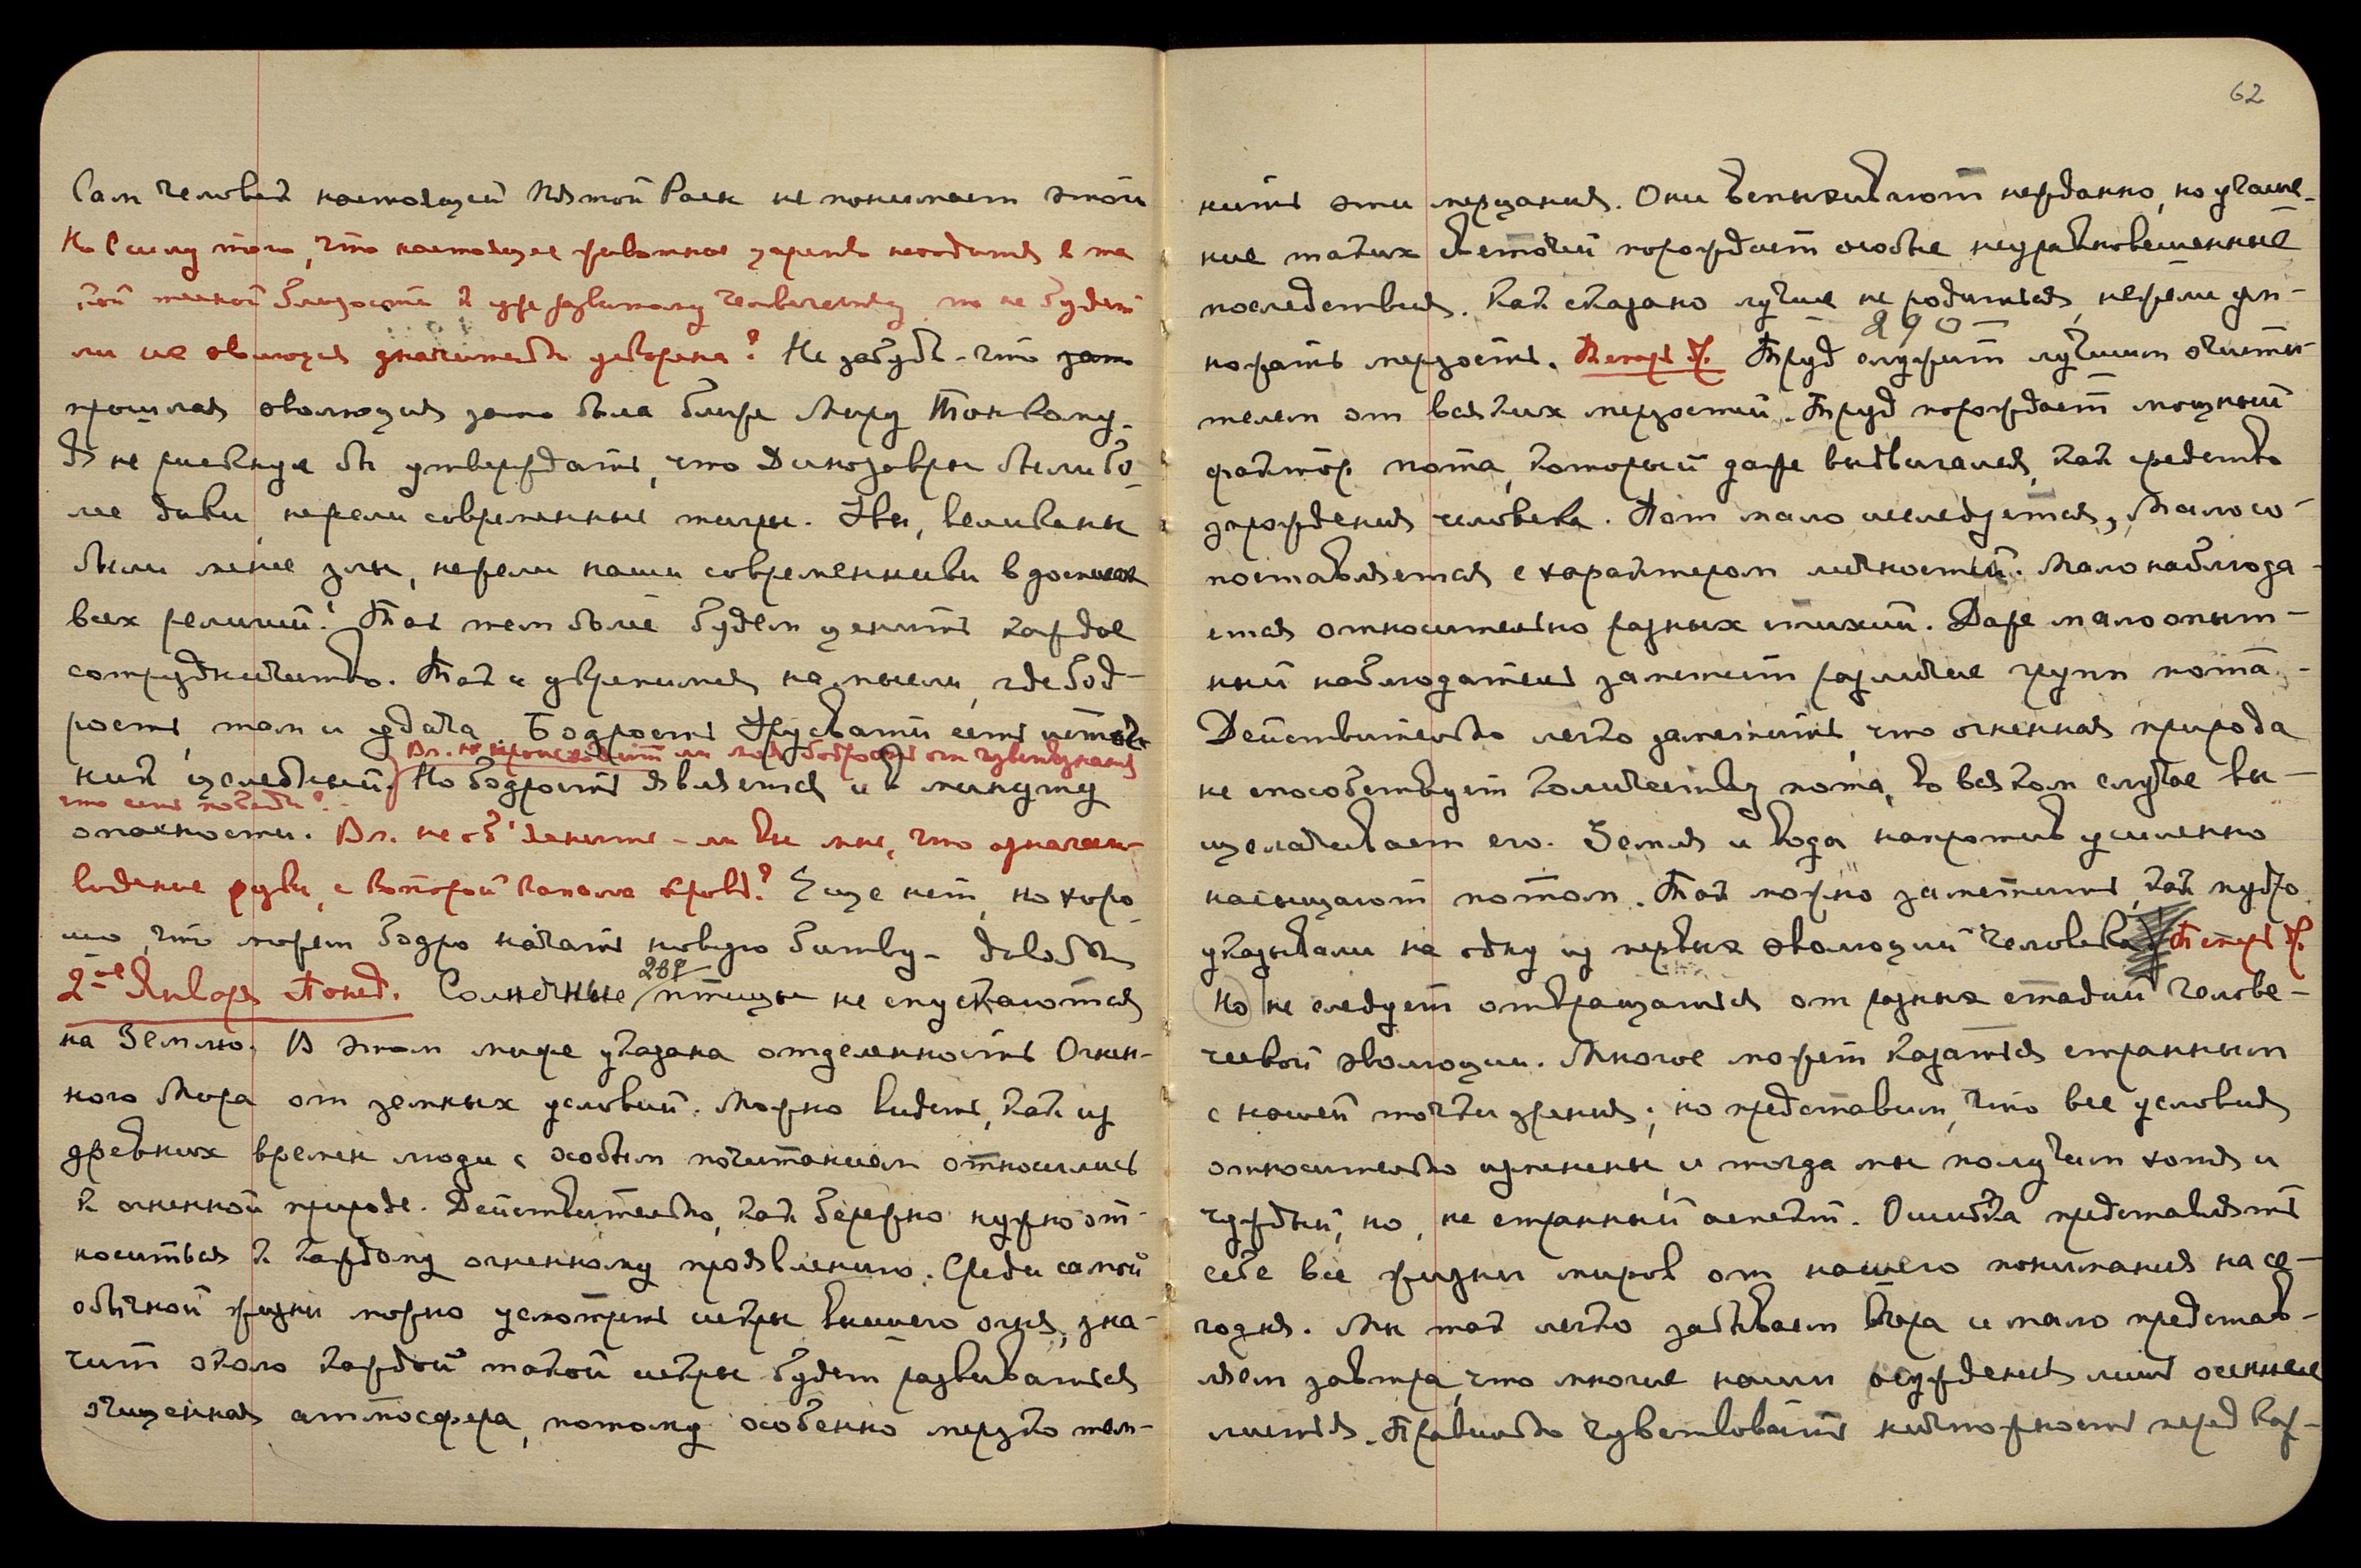 62
Сам человек настоящей Пятой Расы не понимает этой
Но в силу того, что настоящее животное царство находится в та
кой тесной близости к уже развитому человечеству, то не будет
ли их эволюция значительно ускорена? Не забудь - что зато
прошлая эволюция зато была ближе Миру Тонкому.
Я не рискнул бы утверждать, что Динозавры были бо-
лее дики, нежели современные тигры. Увы, великаны
были менее злы, нежели наши современники в доспехах
всех религий! Так тем более будем ценить каждое
сотрудничество. Так и укрепимся на мысли, где бод-
рость, там и удача. Бодрость Урусвати есть источ-
Вл. не происходит ли моя бодрость от чувствознания
ник исцелений. Но бодрость является и в минуту
что есть победа?
опасности. Вл. не объясните-ли Вы мне, что означает
видение руки, с которой капала кровь? Еще нет, но хоро-
шо, что может бодро начать новую битву - довольно
2-ое Января Понед. Солнечные птицы не спускаются
289
на Землю. В этом мифе указана отделенность Огнен-
ного Мира от земных условий. Можно видеть, как из
древних времен люди с особым почитанием относились
к огненной природе. Действительно, как бережно нужно от-
носиться к каждому огненному проявлению. Среди самой
обычной жизни можно усмотреть искры высшего огня, зна-
чит около каждой такой искры будет развиваться
очищенная атмосфера, потому особенно мерзко тем-
нить эти мерцания. Они вспыхивают нежданно, но угаше-
ние таких светочей порождает особые неуравновешенные
последствия. Как сказано лучше не родиться, нежели ум-
290
ножать мерзость. Теперь У. Труд служит лучшим очисти-
телем от всяких мерзостей. Труд порождает мощный
фактор пота, который даже выдвигался, как средство
зарождения человека. Пот мало исследуется, Мало со-
поставляется с характером личностей. Мало наблюда-
ется относительно разных стихий. Даже мало опыт-
ный наблюдатель заметит различие групп пота.
Действительно легко заметить, что огненная природа
не способствует количеству пота, во всяком случае вы-
щелачивает его. Земля и вода напротив усиленно
насыщают потом. Так можно заметить, как мудро
указывали на одну из первых эволюций человека. Теперь У.
Но не следует отвращаться от разных стадий челове-
ческой эволюции. Многое может казаться странным
с нашей точки зрения; но представим, что все условия
относительно изменены, и тогда мы получим хотя и
чуждый, но, не странный аспект. Ошибка представлять
себе все жизни миров от нашего понимания на се-
годня. Мы так легко забываем вчера и мало представ-
ляем завтра, что многие наши осуждения лишь осенние
листья. Правильно чувствовать ничтожность перед каж-